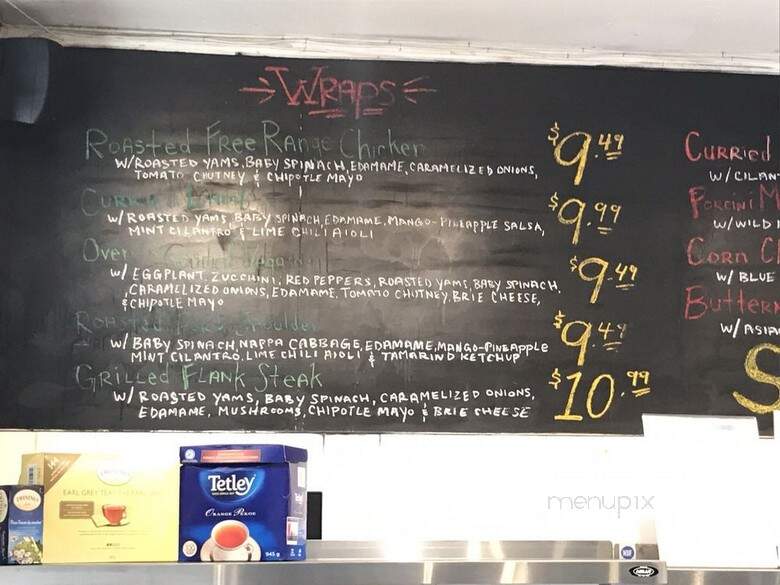 WRAPS
ROASTED FREE RANGE CHICKEN
$9.49
W/ROASTED YAMS, BABY SPINACH, EDAMAME, CARAMELIZED ONIONS,
TOMATO CHUTNEY & CHIPOTLE MAYO
$9.99
W/ ROASTED YAMS, BABY SPINACH, EDAMAME, MANGO-PINEAPPLE SALSA,
MINT CILANTRO & LIME CHILI AIOLI
Oven
$9.49
W/ EGGPLANT, ZUCCHINI, RED PEPPERS, ROASTED YAMS, BABY SPINACH,
CARAMELIZED ONIONS, EDAMAME, TOMATO CHUTNEY, BRIE CHEESE,
& CHIPOTLE MAYO
ROASTED Shoulder
$9.49
W/ BABY SPINACH, NAPPA CABBAGE, EDAMAME, MANGO-PINEAPPLE
MINT CILANTRO, LIME CHILI AIOLI & TAMARIND KETCHUP
GRILLED FLANK STEAK
$10.99
W/ ROASTED YAMS, BABY SPINACH, CARAMELIZED ONIONS,
EDAMAME, MUSHROOMS, CHIPOTLE MAYO & BRIE CHEESE
CURRIED
W/ CILAN
PORCINI M
W/WILD
CORN C
W/ BLUE
Butter
W/ ASIA
S
TWININGS
EARL GREY TEA
Tetley
ORANGE PEKOE
945 g
menupix
NSF